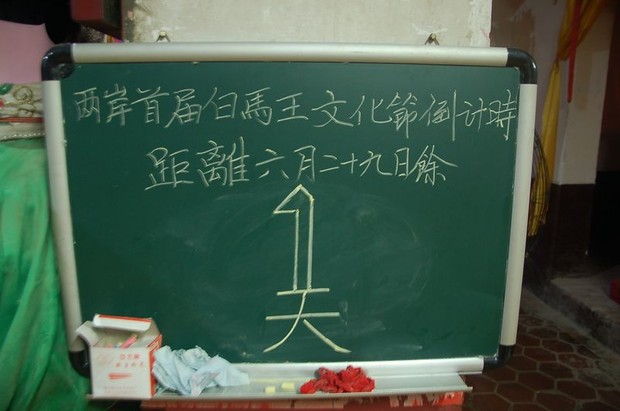 两岸首届白馬王文化節倒計時
距離六月二十九日餘
1
天